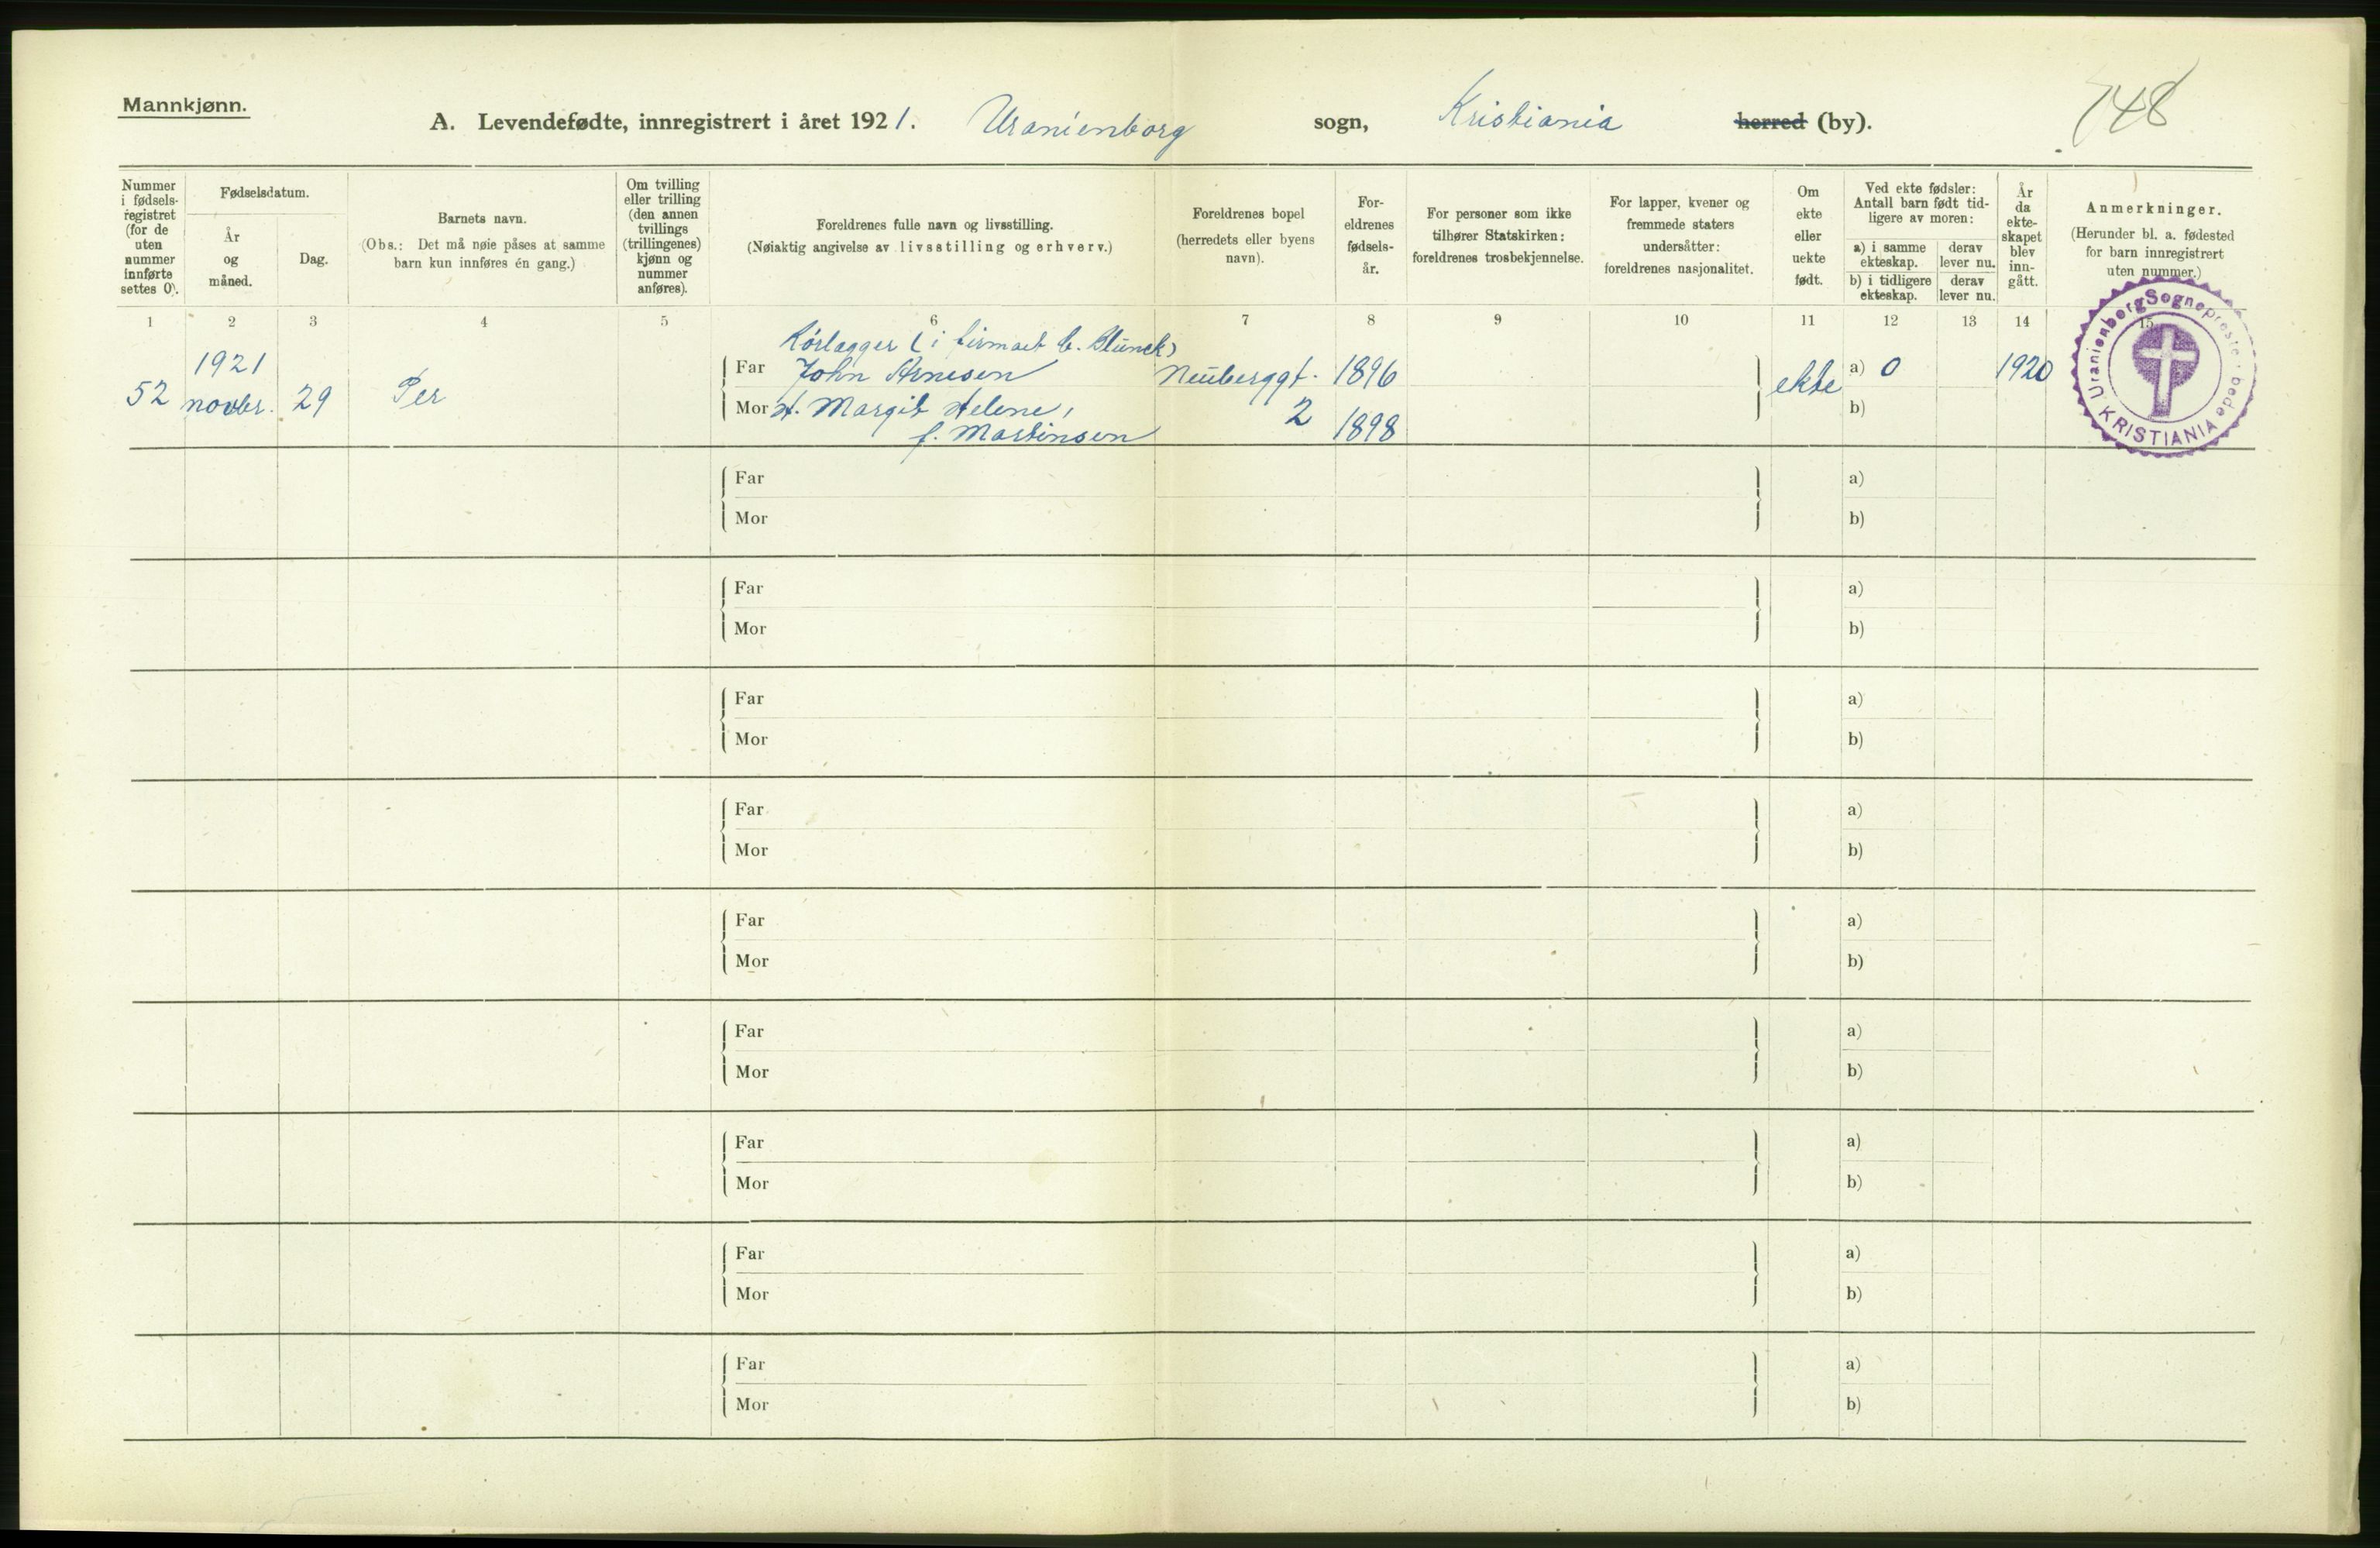 Mannkjønn.
A. Levendefødte, innregistrert i året 1921. Uranienborg sogn, Kristiania herred (by).
748
Nummer i fødsels-registret (for de uten nummer innførte settes 0).
Fødselsdatum.
År og måned.
Dag.
Barnets navn.
(Obs.: Det må nøie påses at samme barn kun innføres én gang.)
Om tvilling eller trilling (den annen tvillings (trillingenes) kjønn og nummer anføres).
Foreldrenes fulle navn og livsstilling.
(Nøiaktig angivelse av livsstilling og erhverv.)
Foreldrenes bopel (herredets eller byens navn).
For-eldrenes fødsels-år.
For personer som ikke tilhører Statskirken: foreldrenes trosbekjennelse.
For lapper, kvener og fremmede staters undersåtter: foreldrenes nasjonalitet.
Om ekte eller uekte født.
Ved ekte fødsler: Antall barn født tid-ligere av moren:
a) i samme ekteskap.
derav lever nu.
b) i tidligere ekteskap.
derav lever nu.
År da ekte-skapet blev inn-gått.
Anmerkninger.
(Herunder bl. a. fødested for barn innregistrert uten nummer.)
1 2 3 4 5 6 7 8 9 10 11 12 13 14 15
Rørlægger (i firmaet C. Blunck)
1921
Far John Arnesen Neuberggt. 1896 ekte a) 0 1920
52 novbr. 29 Per
Mor H. Margit Helene, 2 b)
f. Martinsen 1898
Uranienborg Sogneprestembede
KRISTIANIA
Far a)
Mor b)
Far a)
Mor b)
Far a)
Mor b)
Far a)
Mor b)
Far a)
Mor b)
Far a)
Mor b)
Far a)
Mor b)
Far a)
Mor b)
Far a)
Mor b)